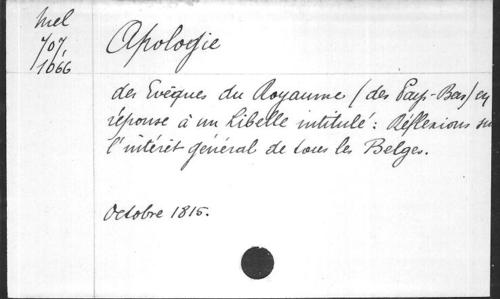 Mel
707,
1066
Apologie
des Evêques du Royaume (des Pays-Bas) en
réponse à un Libelle intitulé: Réflexions su
l'intérêt général de tous les Belges.
Octobre 1815.